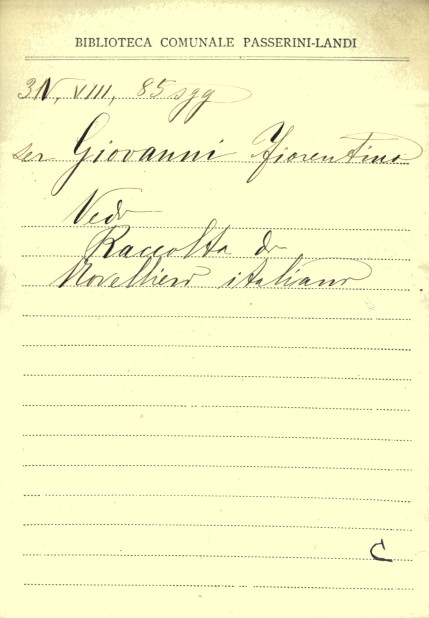 BIBLIOTECA COMUNALE PASSERINI-LANDI
3N, VIII, 85 sgg
ser Giovanni Fiorentino
Vedi
Raccolta di
Novellieri italiani
C